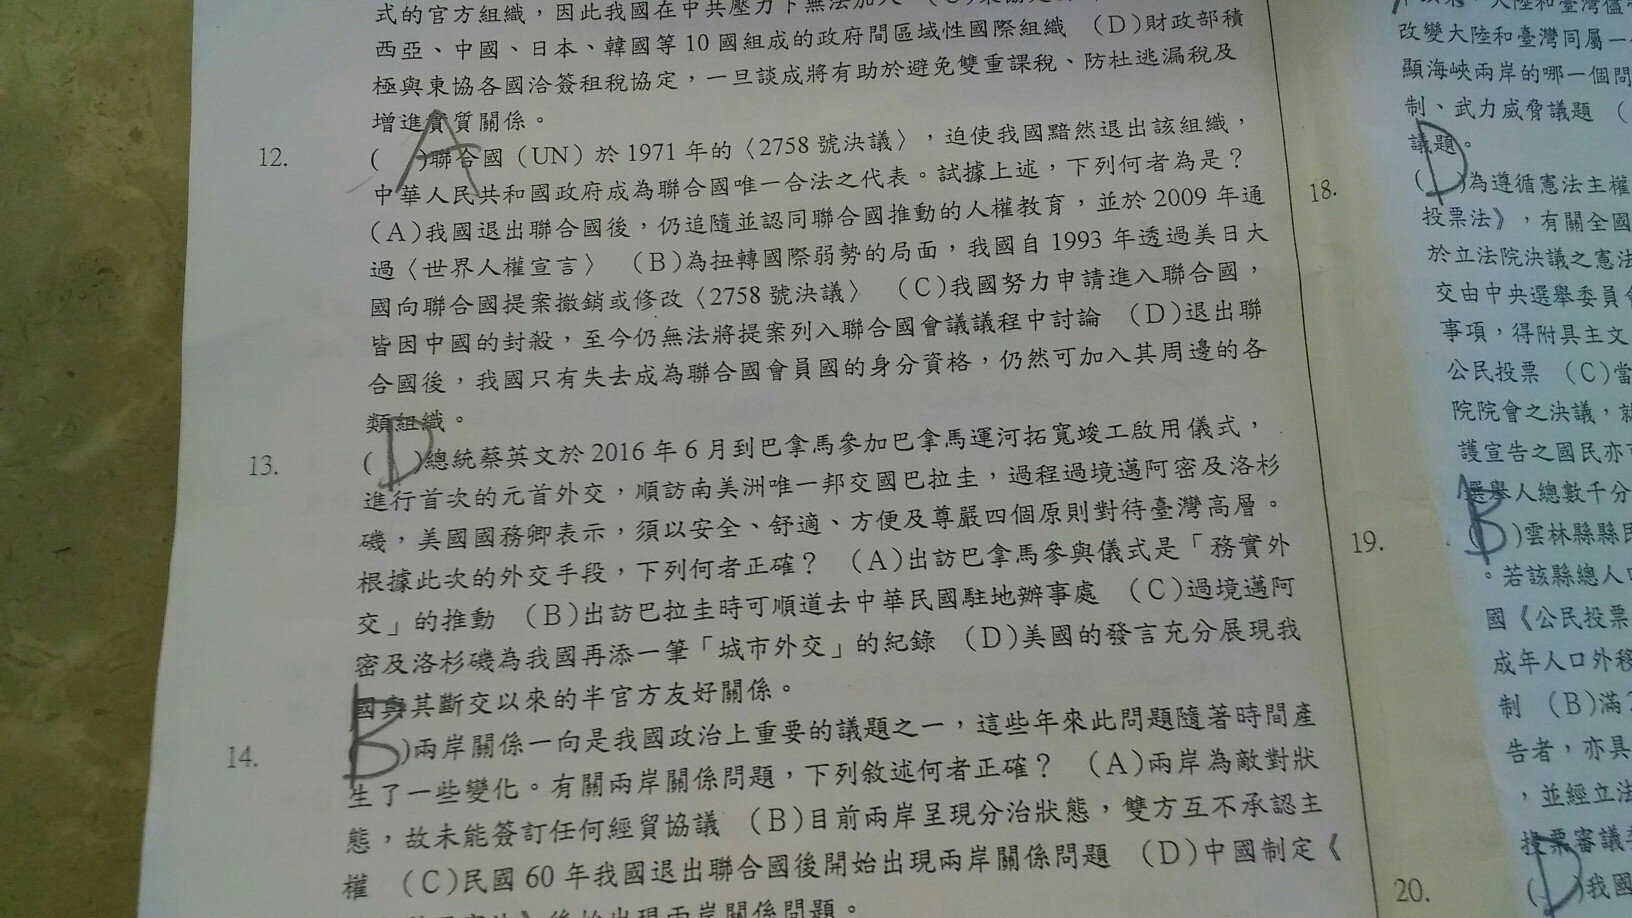 式的官方組織，因此我國在中共壓力下無法加入
西亞、中國、日本、韓國等10國組成的政府間區域性國際組織 （D）財政部積
極與東協各國洽簽租稅協定，一旦談成將有助於避免雙重課稅、防杜逃漏稅及
增進實質關係。
12. （A）聯合國（UN）於1971年的〈2758號決議〉，迫使我國黯然退出該組織，
中華人民共和國政府成為聯合國唯一合法之代表。試據上述，下列何者為是？
（A)我國退出聯合國後，仍追隨並認同聯合國推動的人權教育，並於2009年通
過〈世界人權宣言〉 （B)為扭轉國際弱勢的局面，我國自1993年透過美日大
國向聯合國提案撤銷或修改〈2758號決議〉 （C)我國努力申請進入聯合國，
皆因中國的封殺，至今仍無法將提案列入聯合國會議議程中討論 （D)退出聯
合國後，我國只有失去成為聯合國會員國的身分資格，仍然可加入其周邊的各
類組織。
13. （D）總統蔡英文於2016年6月到巴拿馬參加巴拿馬運河拓寬竣工啟用儀式，
進行首次的元首外交，順訪南美洲唯一邦交國巴拉圭，過程過境邁阿密及洛杉
磯，美國國務卿表示，須以安全、舒適、方便及尊嚴四個原則對待臺灣高層。
根據此次的外交手段，下列何者正確？ （A)出訪巴拿馬參與儀式是「務實外
交」的推動 （B)出訪巴拉圭時可順道去中華民國駐地辦事處 （C)過境邁阿
密及洛杉磯為我國再添一筆「城市外交」的紀錄 （D)美國的發言充分展現我
國與其斷交以來的半官方友好關係。
14. （B）兩岸關係一向是我國政治上重要的議題之一，這些年來此問題隨著時間產
生了一些變化。有關兩岸關係問題，下列敘述何者正確？ （A)兩岸為敵對狀
態，故未能簽訂任何經貿協議 （B)目前兩岸呈現分治狀態，雙方互不承認主
權 （C)民國60年我國退出聯合國後開始出現兩岸關係問題 （D)中國制定《
後始出現兩岸關係問題。
大陸和臺灣
改變大陸和臺灣同屬一
顯海峽兩岸的哪一個問
制、武力威脅議題 （
議題。
18. （D）為遵循憲法主權
投票法》，有關全國
於立法院決議之憲法
交由中央選舉委員會
事項，得附具主文
公民投票 （C)當
院院會之決議，就
護宣告之國民亦
選舉人總數千分
19. （B）雲林縣縣民
。若該縣總人口
國《公民投票
成年人口外移
制 （B)滿
告者，亦具
，並經立法
投票審議
20. （D）我國